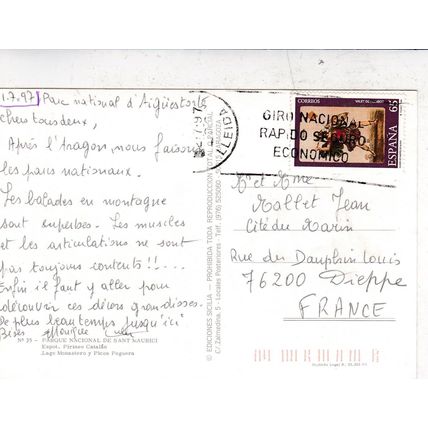 1.7.97 Parc national d'Aigüestorte
chers tous deux,
Après l'Aragon, nous faisons
les parcs nationaux.
Les balades en montagne
sont superbes. Les muscles
et les articulations ne sont
pas toujours contents !!...
Enfin il faut y aller pour
découvrir ces décors grandioses.
de plus beau temps jusqu'ici
Bises Monique
Nº 35 - PARQUE NACIONAL DE SANT MAURICI
Espot, Pirineo Catalán
Lago Monastero y Picos Peguera
© EDICIONES SICILIA — PROHIBIDA TODA REPRODUCCION
C/ Zalmedina, 5 - Locales Posteriores - Telf. (976)
LLEIDA
7-97
GIRO NACIONAL
RAPIDO SEGURO
ECONOMICO
CORREOS
65
ESPAÑA
Mr et Mme
Mallet Jean
Cité du Marin
Rue du Dauphin Louis
76200 Dieppe
FRANCE